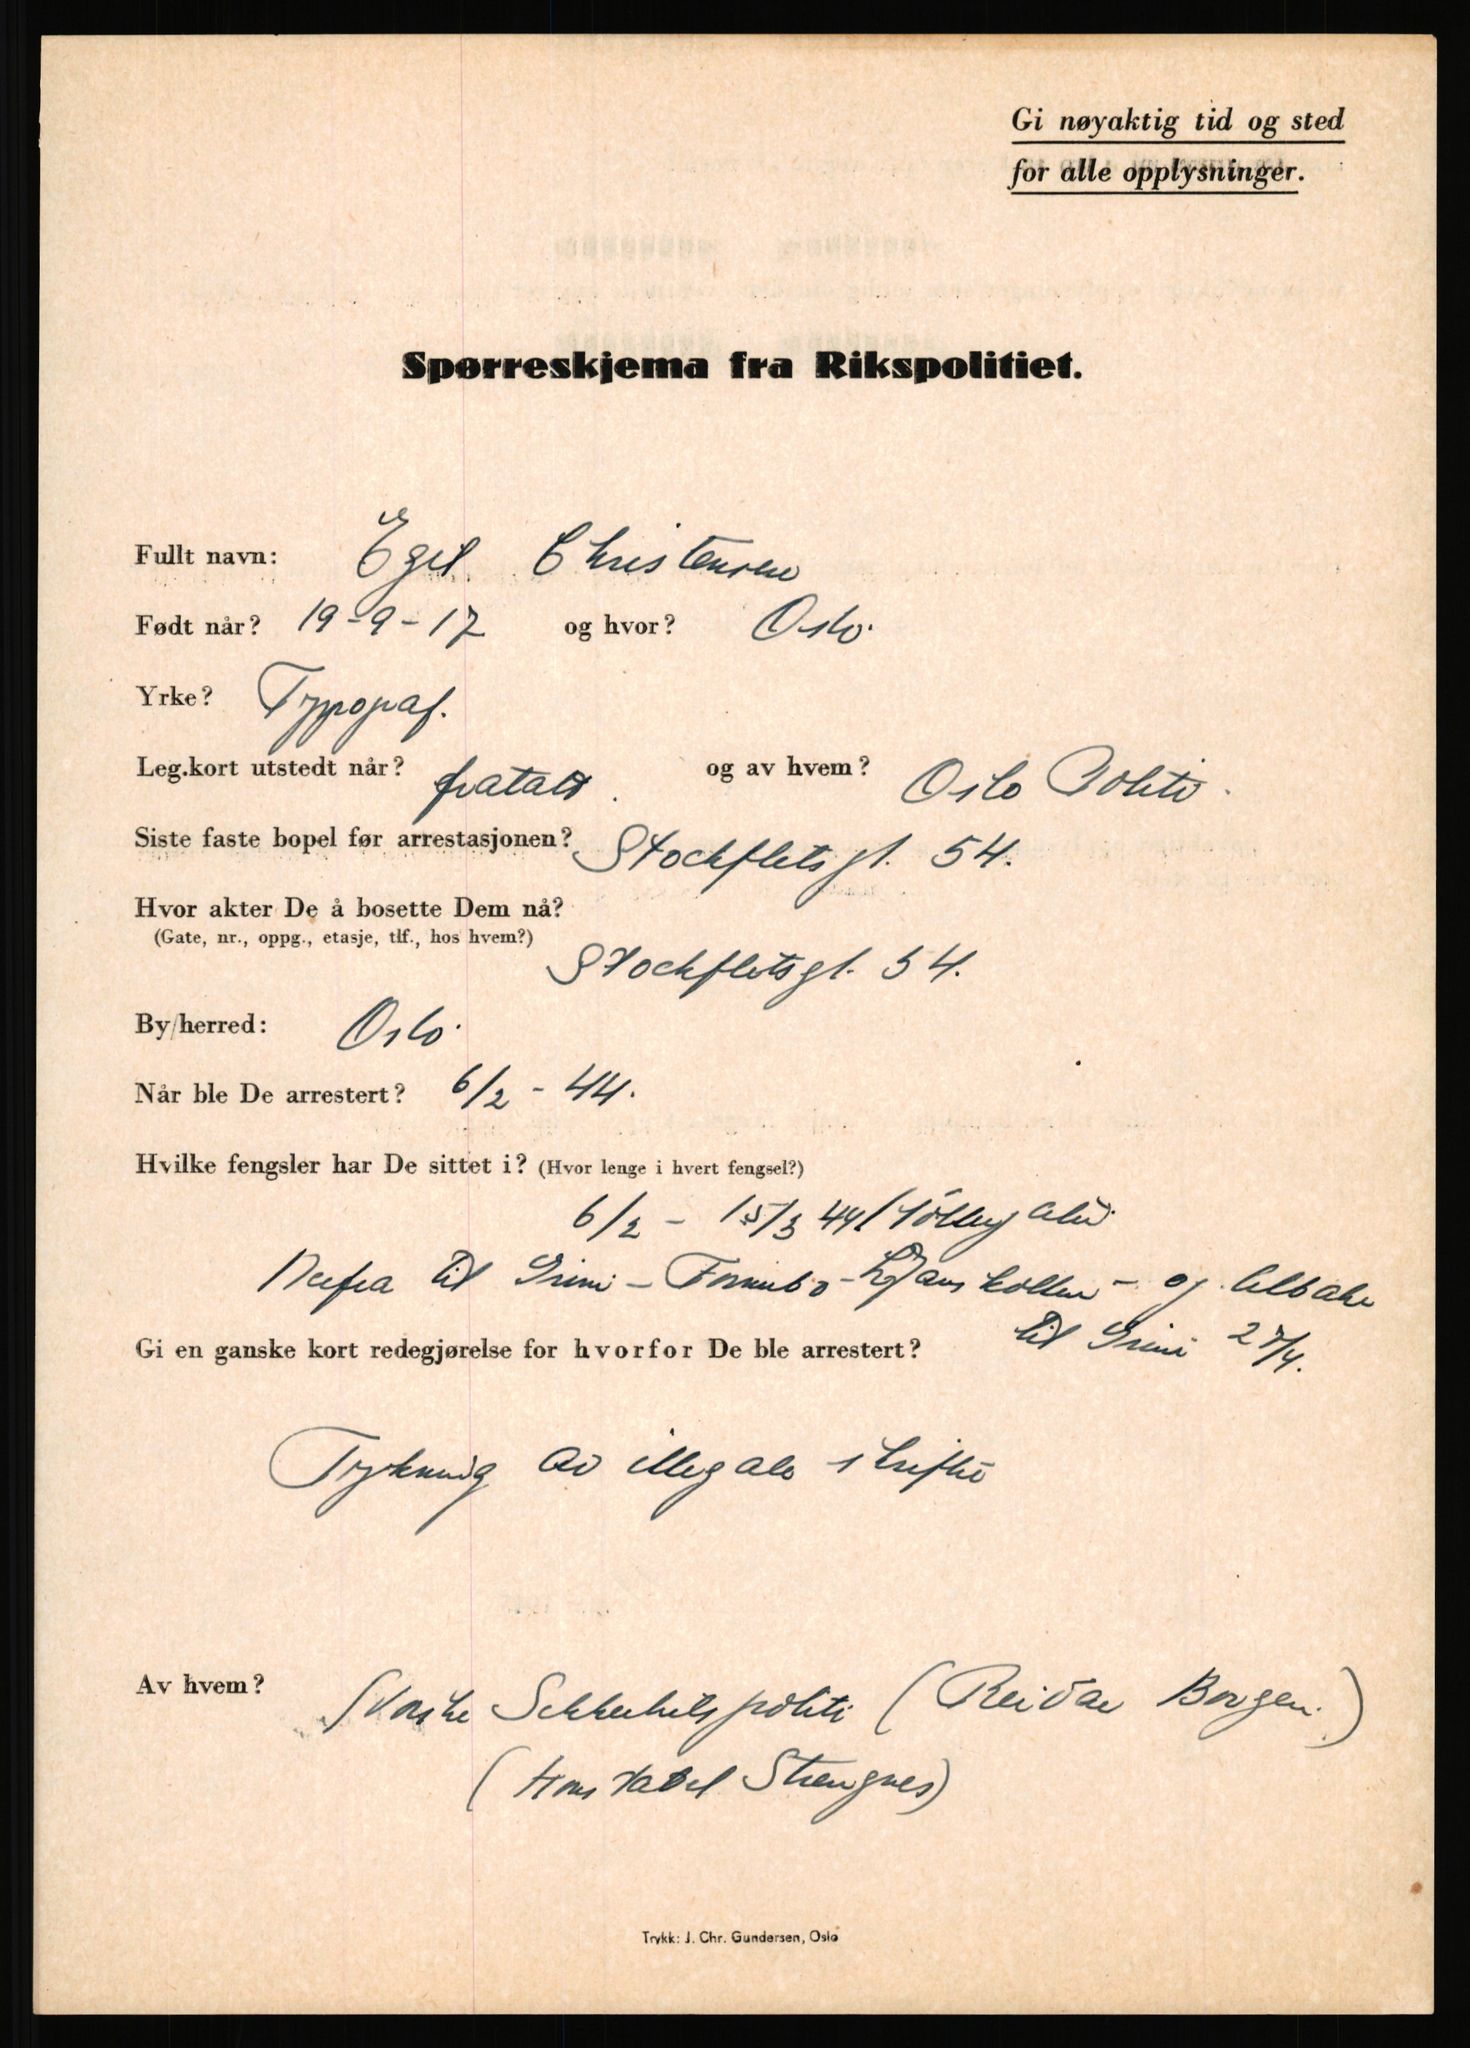 Gi nøyaktig tid og sted
for alle opplysninger.
Spørreskjema fra Rikspolitiet.
Fullt navn: Egil Christensen
Født når? 19-9-17 og hvor? Oslo.
Yrke? Typograf.
Leg.kort utstedt når? fratatt. og av hvem? Oslo Politi.
Siste faste bopel før arrestasjonen? Stockfletsgt. 54.
Hvor akter De å bosette Dem nå?
(Gate, nr., oppg., etasje, tlf., hos hvem?)
Stockfletsgt. 54.
By/herred: Oslo.
Når ble De arrestert? 6/2 - 44.
Hvilke fengsler har De sittet i? (Hvor lenge i hvert fengsel?)
6/2 - 15/3 44
Derfra til Grini - Fornebo - - og tilbake
til Grini 27/4.
Gi en ganske kort redegjørelse for hvorfor De ble arrestert?
Trykning av illegale skrifter
Av hvem? Norske Sikkerhetspoliti (Reidar Borgen.)
(Konstabel Strengnes)
Trykk: J. Chr. Gundersen, Oslo